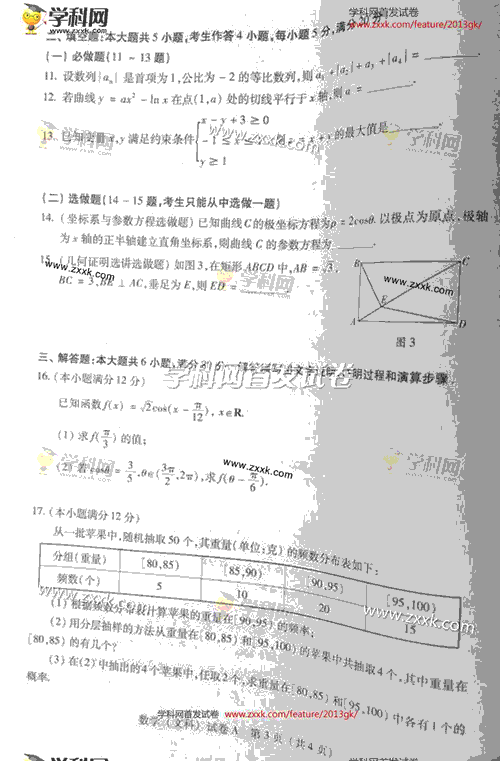 学科网首发试卷
www.zxxk.com/feature/2013gk/
二、填空题:本大题共5小题,考生作答4小题,每小题5分,满分20分
(一)必做题(11~13题)
11. 设数列{aₙ}是首项为1,公比为-2的等比数列,则a₁+|a₂|+a₃+|a₄|=
12. 若曲线y=ax²-ln x在点(1,a)处的切线平行于x轴,则a=
13. 已知变量x,y满足约束条件 { x-y+3≥0
-1≤x≤1
y≥1
则z=x+y的最大值是
(二)选做题(14-15题,考生只能从中选做一题)
14. (坐标系与参数方程选做题)已知曲线C的极坐标方程为ρ=2cosθ. 以极点为原点,极轴
为x轴的正半轴建立直角坐标系,则曲线C的参数方程为
15. (几何证明选讲选做题)如图3,在矩形ABCD中,AB=√3,
BC=3,BE⊥AC,垂足为E,则ED=
B C
E
A D
图3
三、解答题:本大题共6小题,满分80分.
明过程和演算步骤.
16. (本小题满分12分)
已知函数f(x)=√2cos(x-π/12), x∈R.
(1)求f(π/3)的值;
(2)若cosθ=3/5,θ∈(3π/2,2π),求f(θ-π/6).
17. (本小题满分12分)
从一批苹果中,随机抽取50个,其重量(单位:克)的频数分布表如下:
分组(重量) [80,85) [85,90) [90,95) [95,100)
频数(个) 5 10 20 15
(1)根据频数分布表计算苹果的重量在[90,95)的频率;
(2)用分层抽样的方法从重量在[80,85)和[95,100)的苹果中共抽取4个,其中重量在
[80,85)的有几个?
(3)在(2)中抽出的4个苹果中,任取2个,求重量在[80,85)和[95,100)中各有1个的
概率.
学科网首发试卷
www.zxxk.com/feature/2013gk/
数学(文科)试卷A 第3页(共4页)